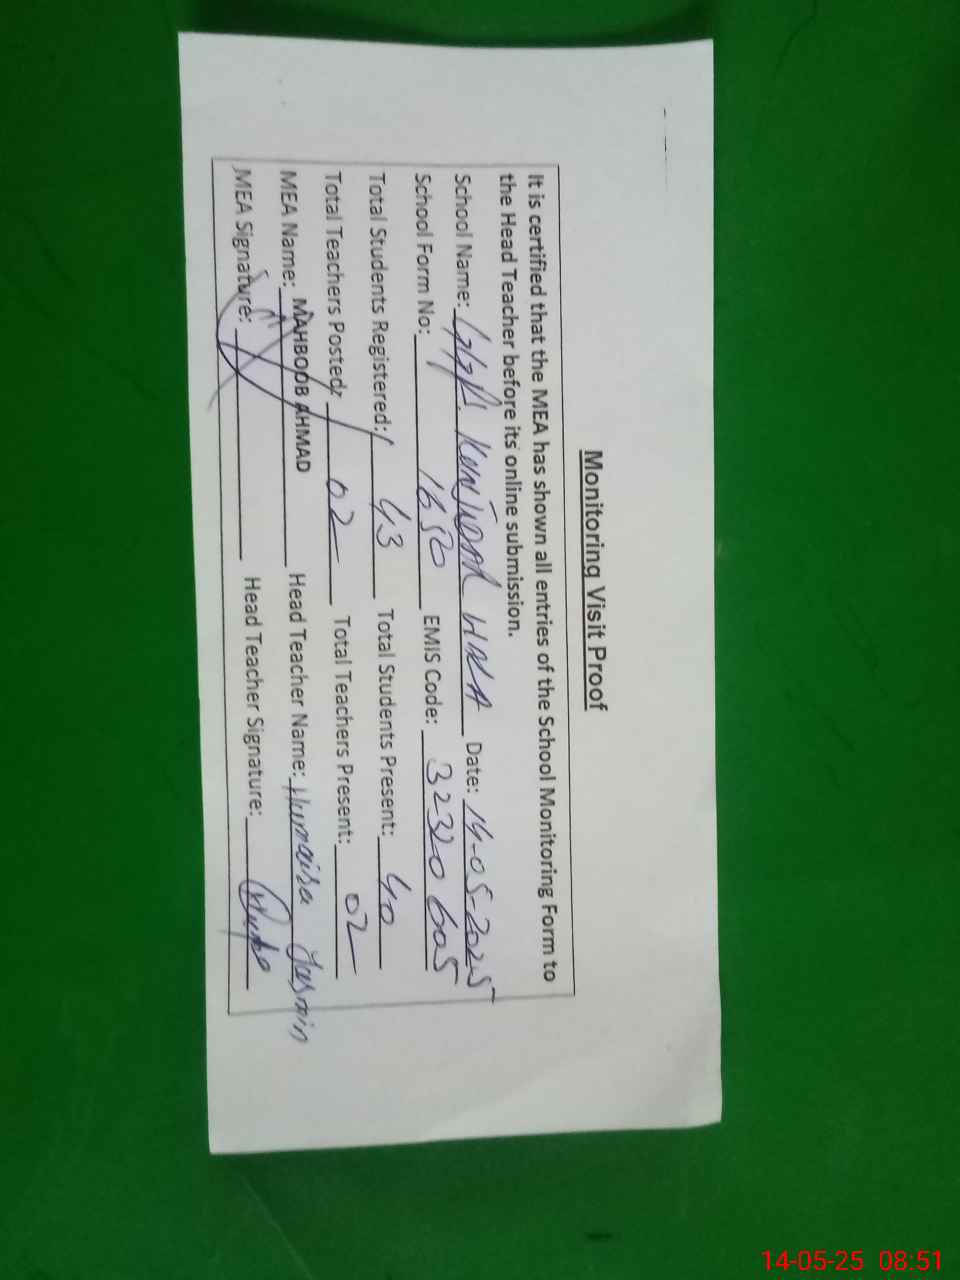 Monitoring Visit Proof
It is certified that the MEA has shown all entries of the School Monitoring Form to
the Head Teacher before its online submission.
School Name: Date: 14-05-2025
School Form No: 1650 EMIS Code: 32320605
Total Students Registered: 43 Total Students Present: 40
Total Teachers Posted: 02 Total Teachers Present: 02
MEA Name: MAHBOOB AHMAD Head Teacher Name: Humaira Yasmin
MEA Signature: Head Teacher Signature:
14-05-25 08:51